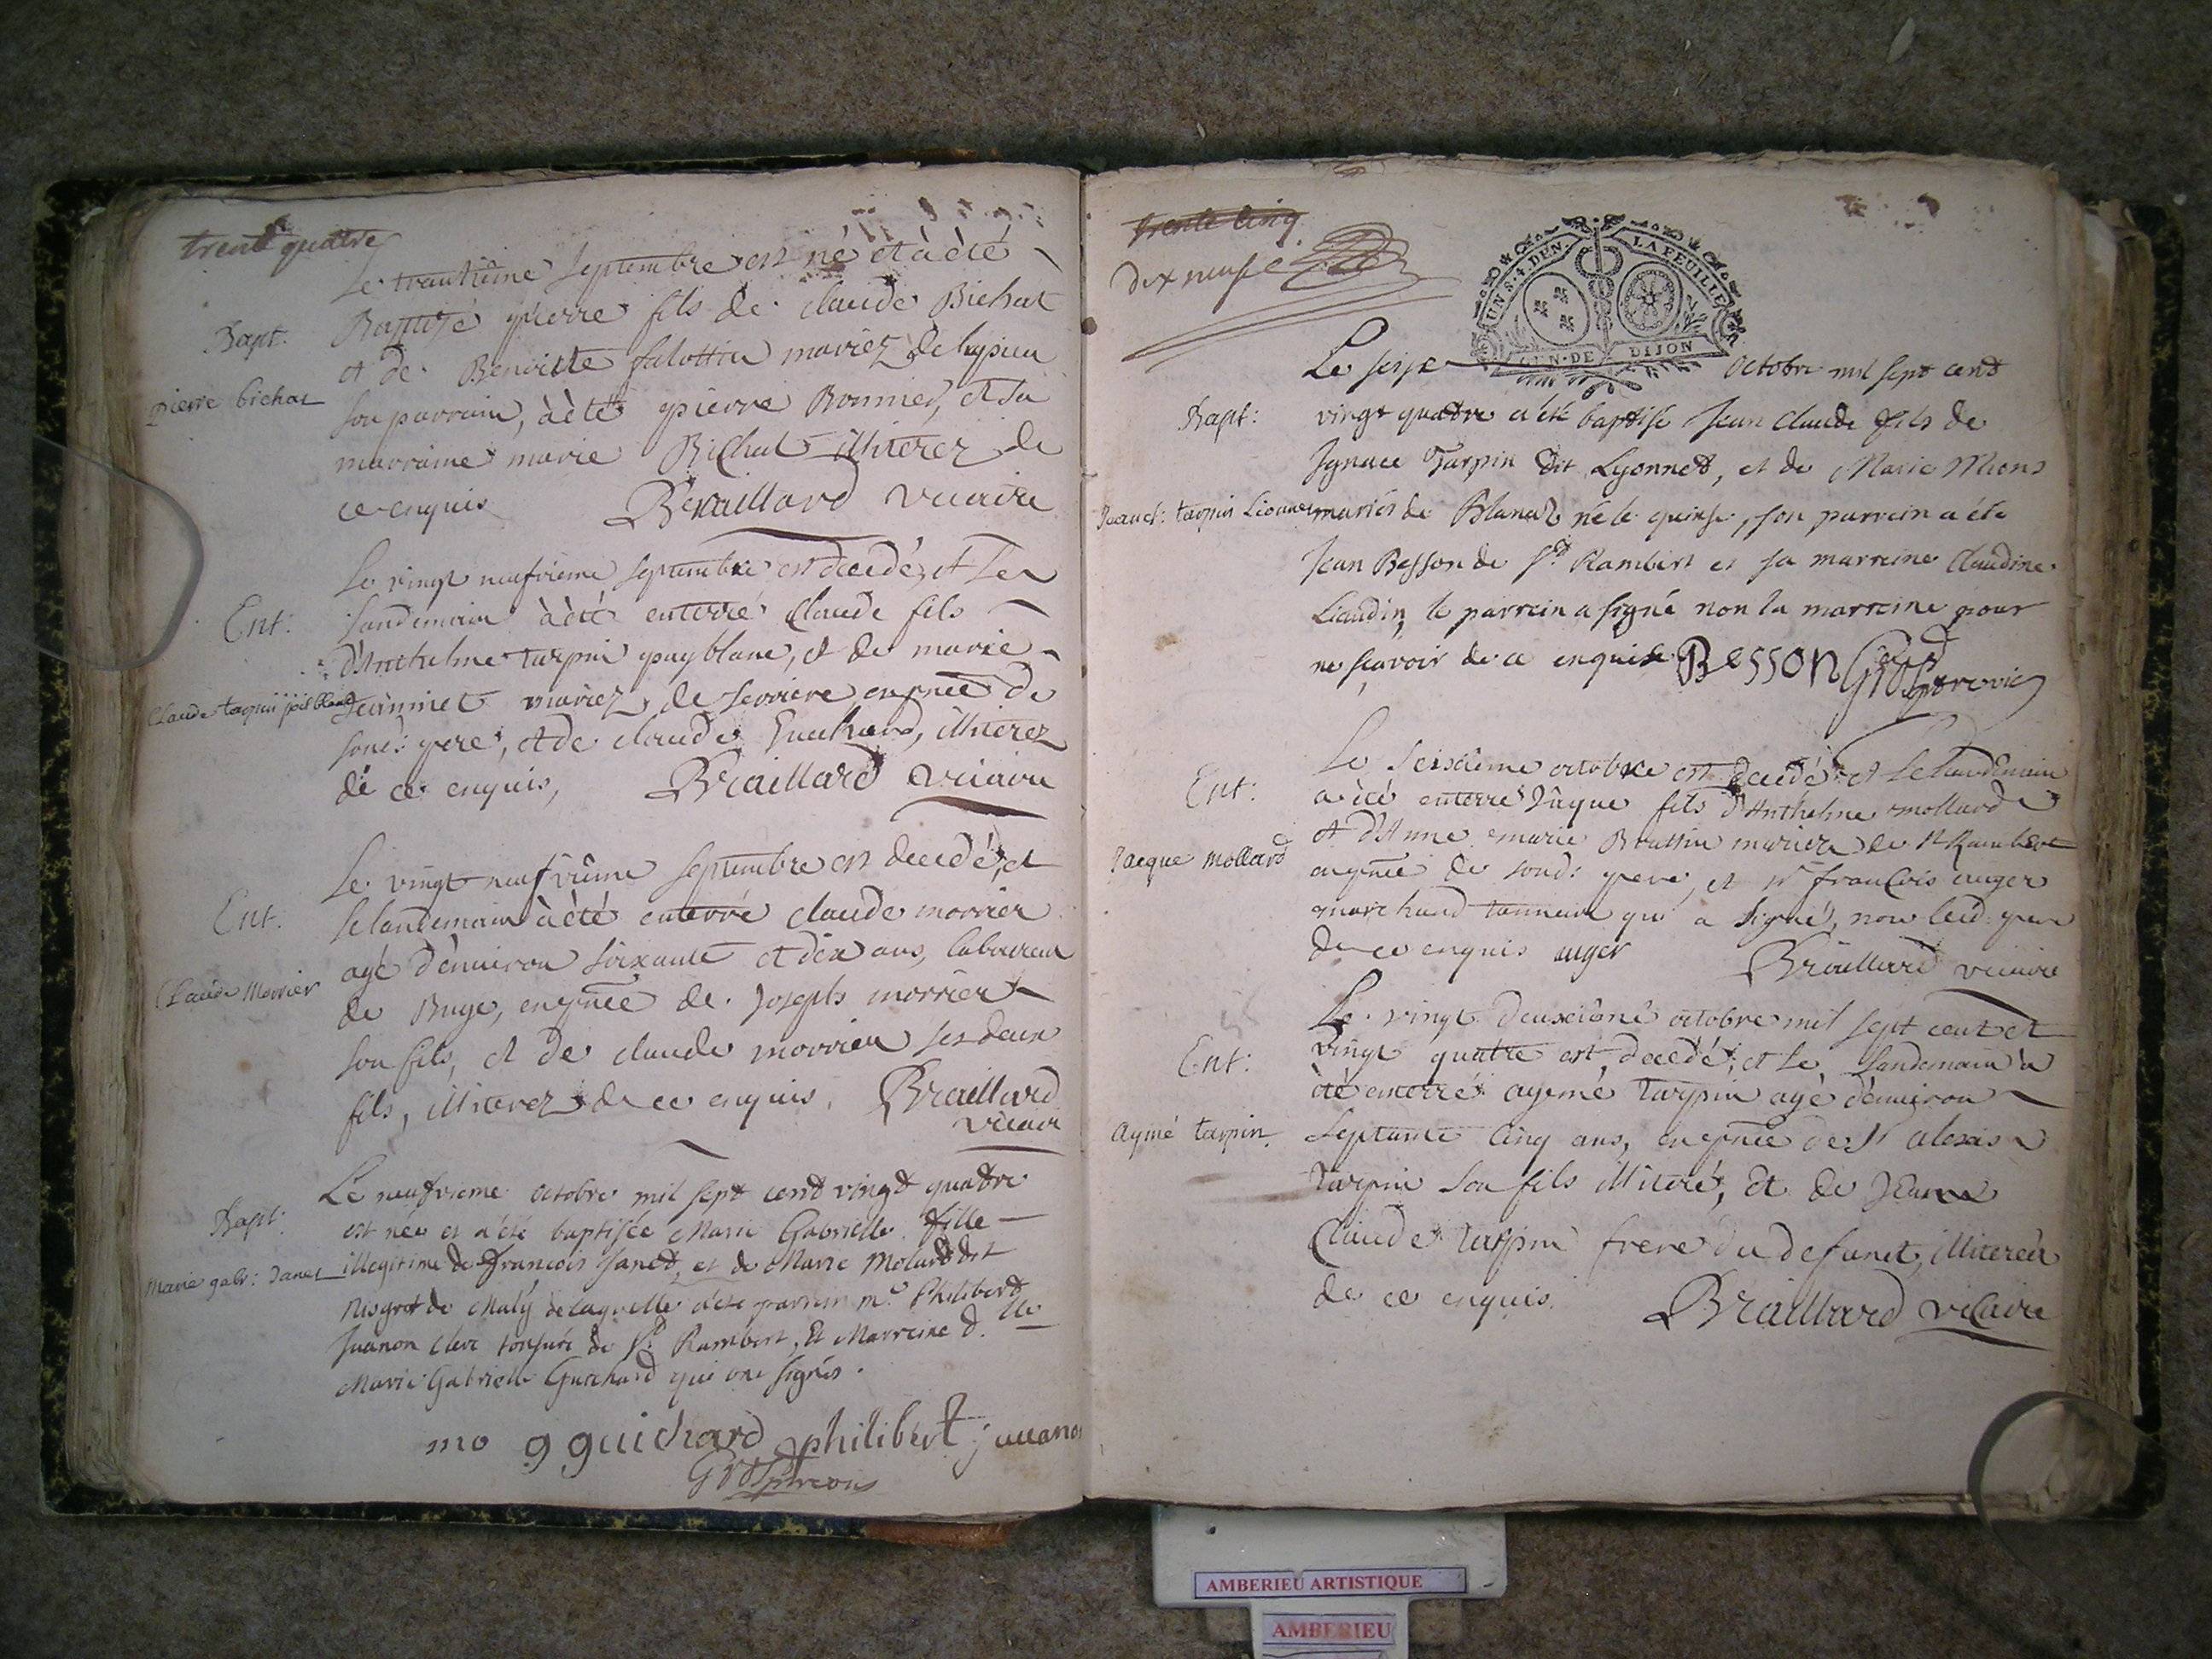 trente quatre
Le trantième Septembre est né et à été
Bapt: Baptizé pierre fils de claude Bichat
et de Benoitte mariez de
pierre bichat son parrain, à été pierre Bonnet, et sa
marraine marie Bichat illiterez de
ce enquis Braillard vicaire
Le vingt neufvieme septembre est decedé, et Le
Ent: landemain à été enterré Claude fils
d'Anthelme tarpin puyblanc, et de marie
Jeaninet mariez de serriere, en pnce de
sond: pere, et de claude Guichard, illiterez
de ce enquis, Braillard vicaire
Le vingt neufvième Septembre est decedé, et
Ent: le landemain à été enterré claude morrier
agé d'enuiron soixante et dix ans, laboureur
Claude Morrier de Buge, en pnce de Joseph morrier
son fils, et de claude morrier ses deux
fils, illiterez de ce enquis. Braillard
vicaire
Le neufvieme octobre mil sept cent vingt quatre
Bapt: est née et a été baptisée Marie Gabrielle fille
Marie gabr: Janet illegitime de francois Janet, et de Marie Molard dit
de laquelle a été parrein me. Philibert
Juanon clerc tonsuré de St. Rambert, Et Marreine d.lle
Marie Gabrielle Guichard qui ont signés.
mo g guichard philibert juuanon
trente cinq
dix neuf
UN S. 4. DEN. LA FEUILLE
GEN. DE DIJON
Le seize octobre mil sept cent
Bapt: vingt quatre a été baptisé Jean Claude fils de
Ignace Tarpin dit Lyonnet, et de Marie Miens
mariés de Blanaz né le quinze, son parrein a été
Jean Besson de St. Rambert et sa marreine Claudine
Liaudin, le parrein a signé non la marreine pour
ne sçavoir de ce enquise Besson
Le Seizième octobre est decedé et le landemain
Ent: a été enterré Jâque fils d'Anthelme mollard
Jacque Mollard et d'Anne marie mariez de St Rambert
en pnce de sond: pere, et sr. francois auger
marchand tanneur qui a signé, non led. pere
de ce enquis auger Braillard vicaire
Le vingt deuxième octobre mil sept cent et
Ent: vingt quatre est decedé, et Le landemain à
été enterré aymé tarpin agé d'enuiron
aymé tarpin septante cinq ans, en pnce de Sr alexis
tarpin son fils illiteré, et de Jean
Claude tarpin frere du defunct, illiterez
de ce enquis. Braillard vicaire
AMBERIEU ARTISTIQUE
AMBERIEU